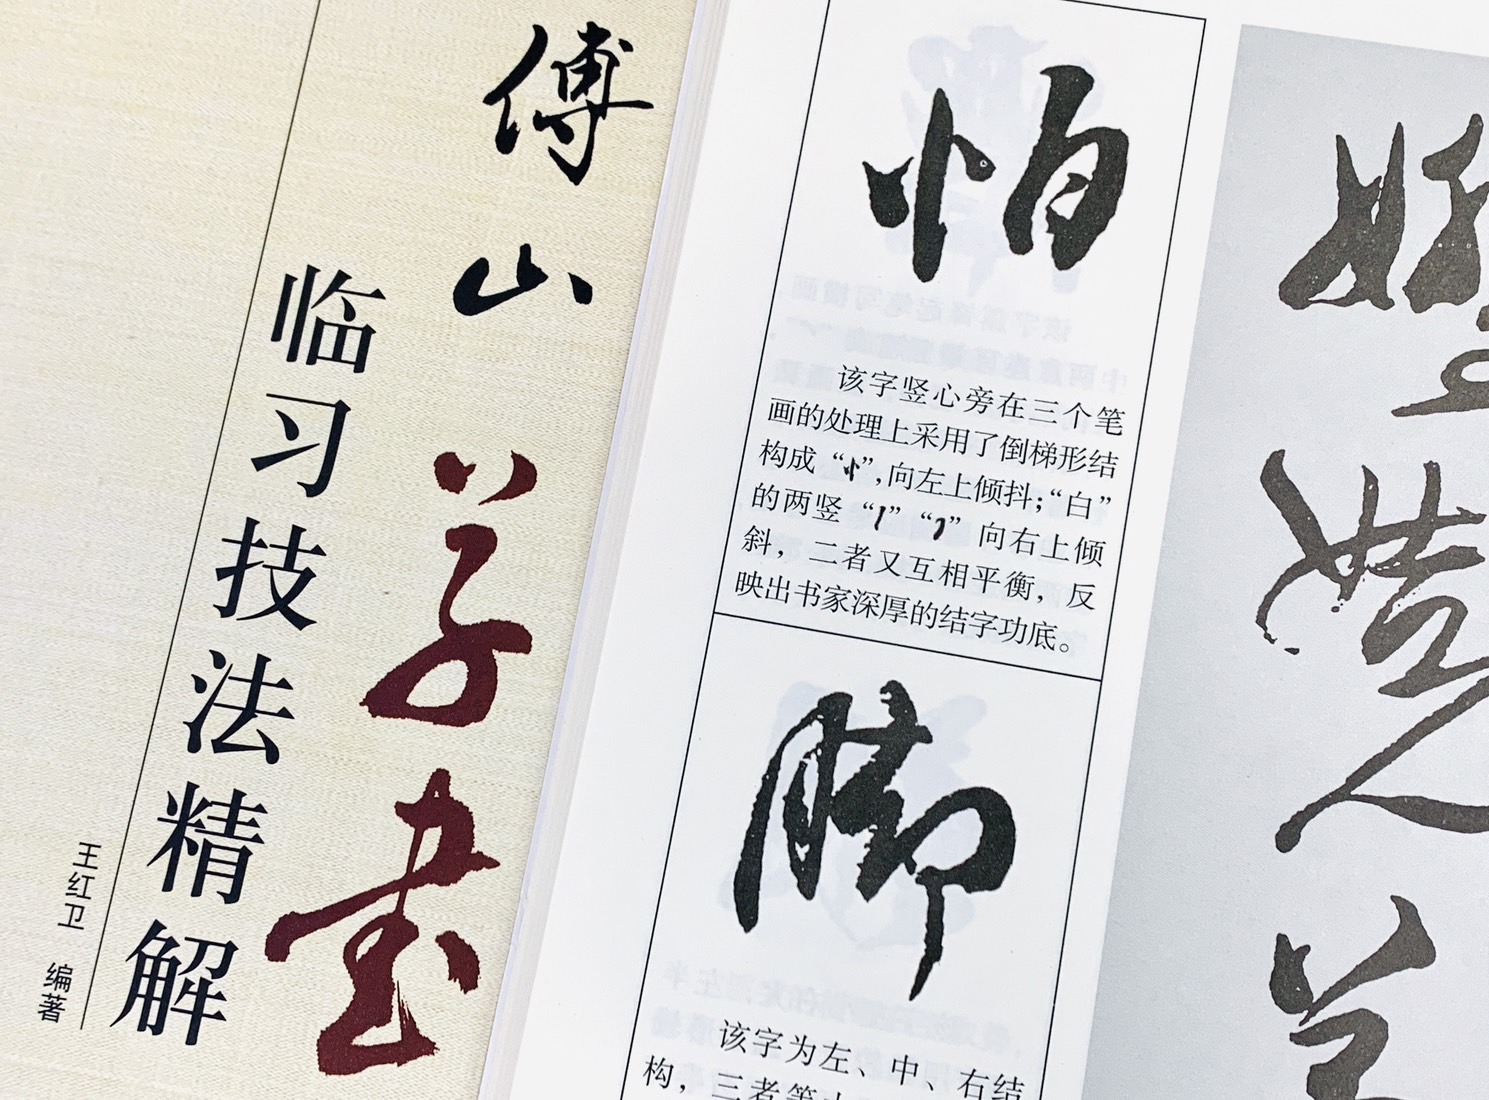 傅山
草书
临习技法精解
王红卫 编著
怕
该字竖心旁在三个笔
画的处理上采用了倒梯形结
构成“忄”,向左上倾抖;“白”
的两竖“丨”“㇆”向右上倾
斜，二者又互相平衡，反
映出书家深厚的结字功底。
脚
该字为左、中、右结
构，三者等